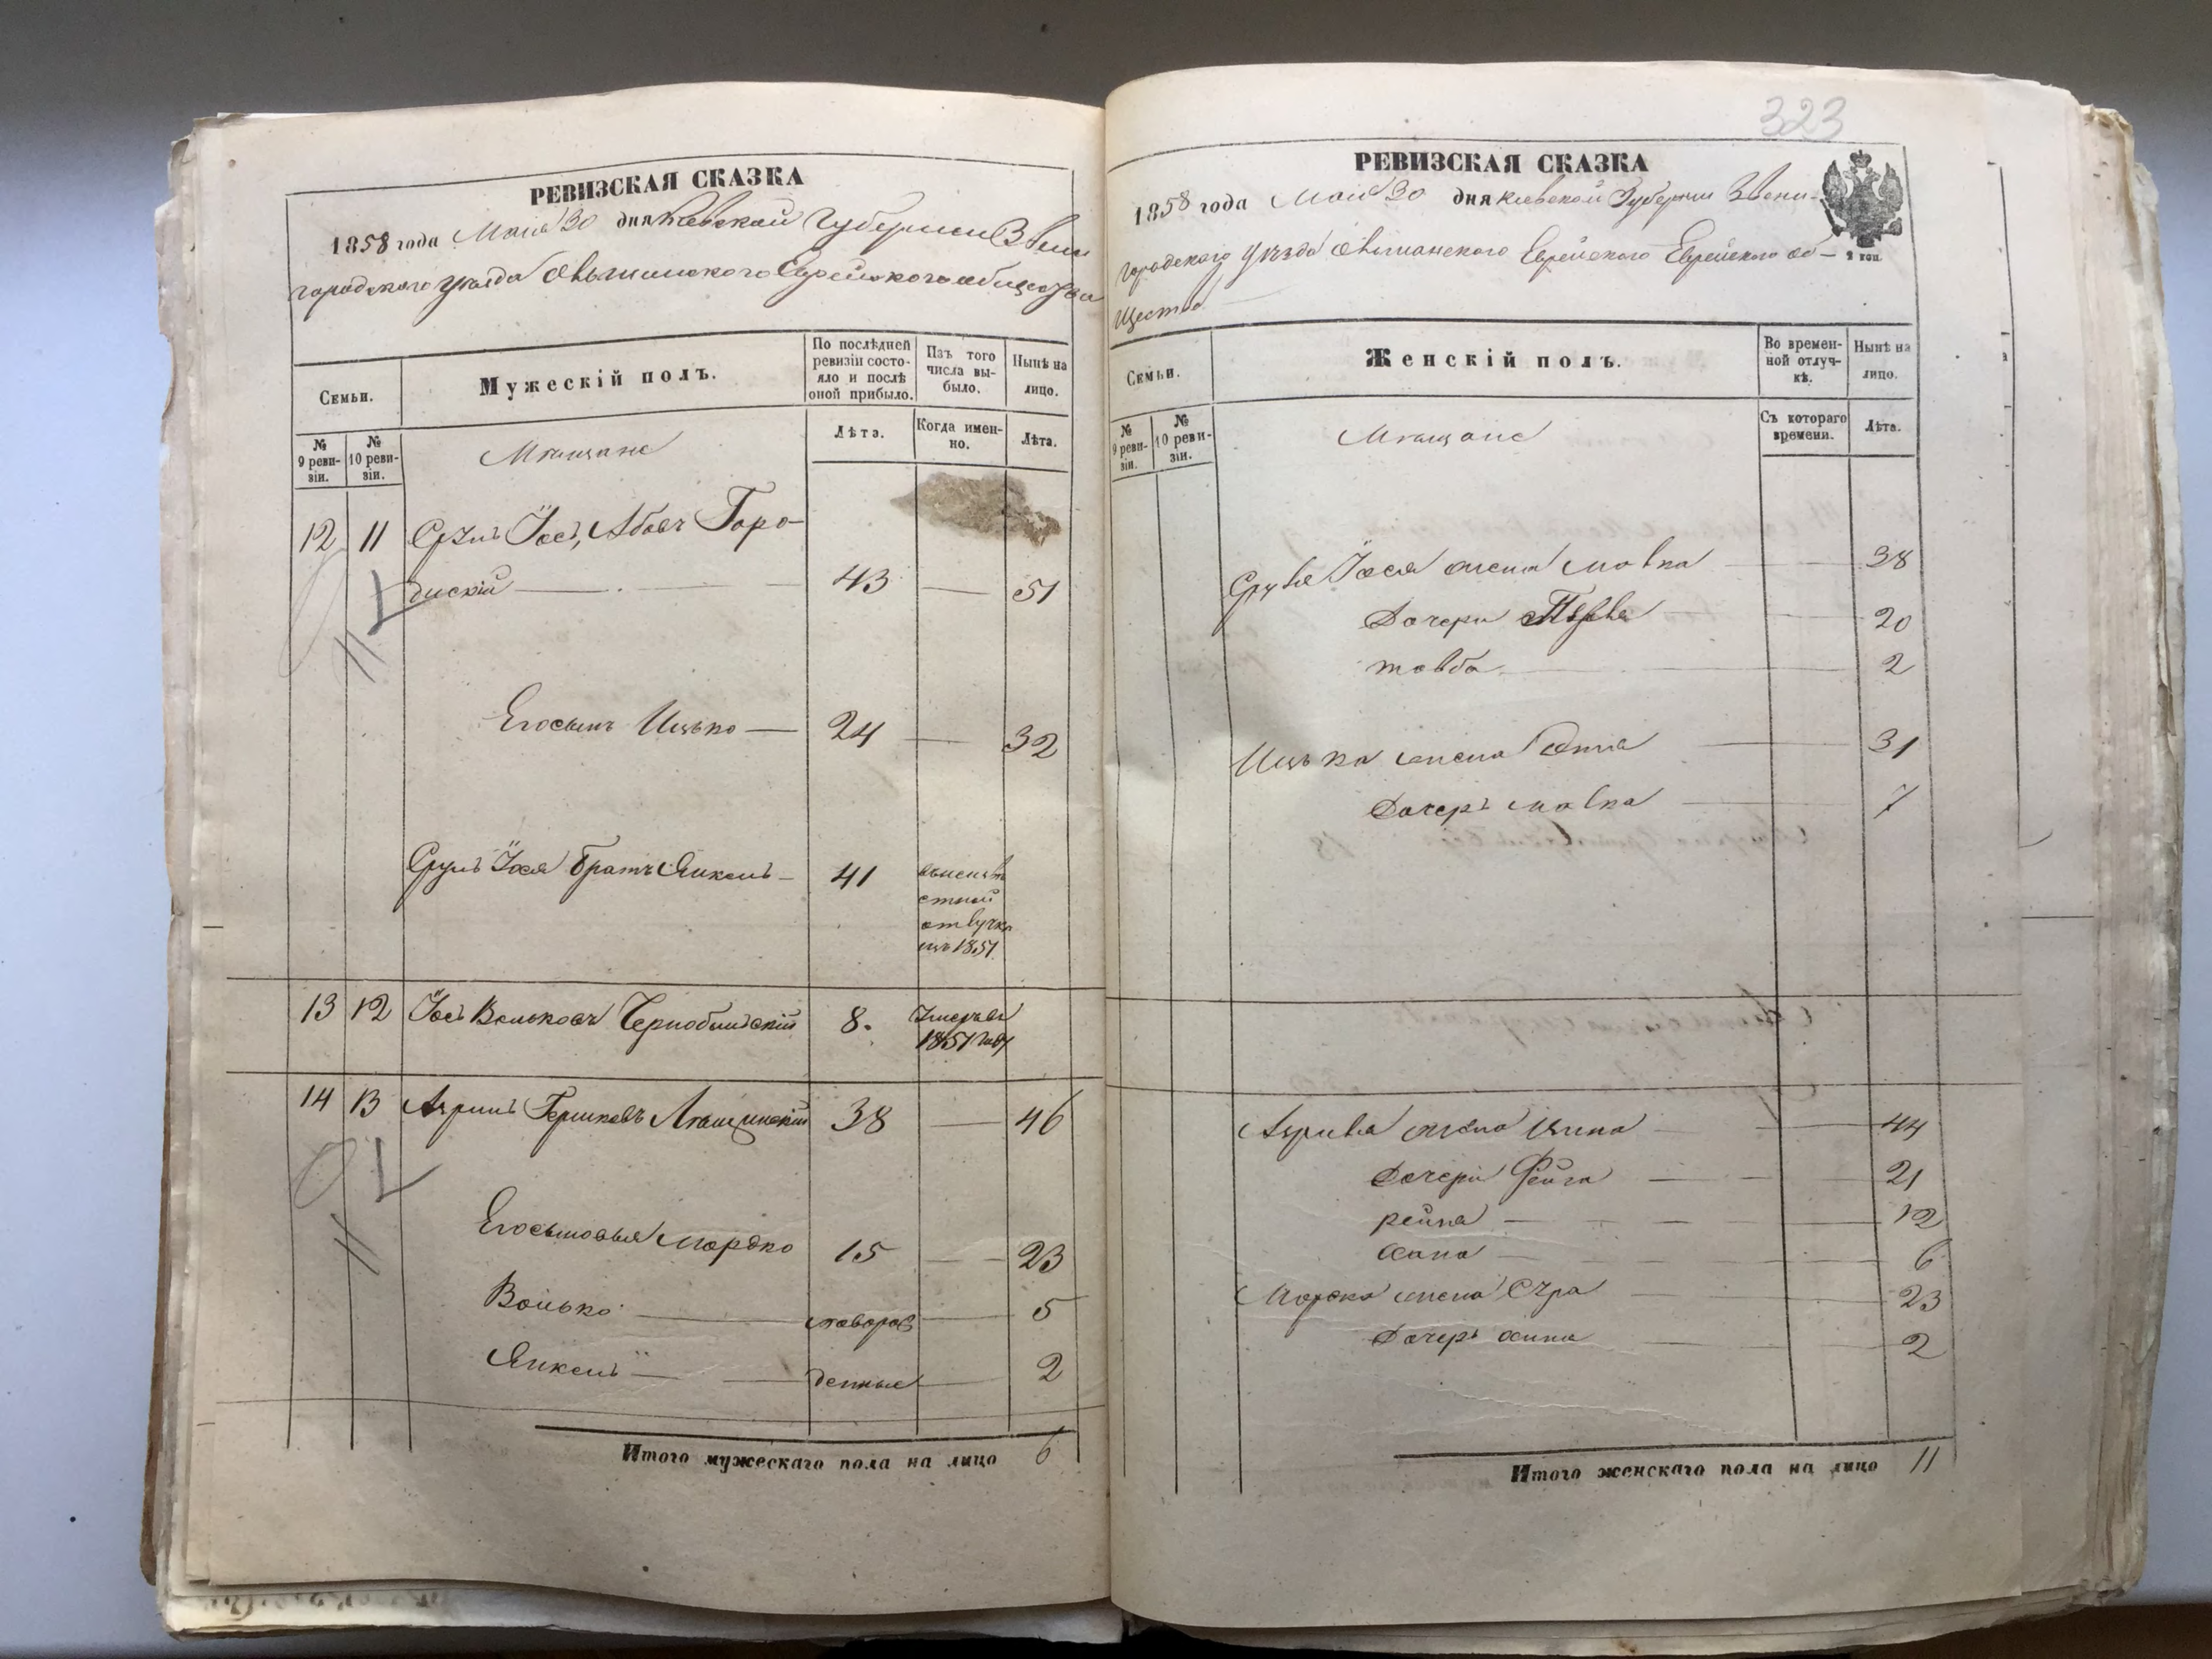 РЕВИЗСКАЯ СКАЗКА
1858 года Мая 30 дня Киевской Губернии Звени
городского уезда Ольшанского Еврейского общества
Семьи.
Мужескій полъ.
По послѣдней ревизіи состо-
яло и послѣ оной прибыло.
Изъ того числа вы-
было.
Нынѣ на лицо.
№ 9 реви-
зіи.
№ 10 реви-
зіи.
Мещане
Лѣта.
Когда имен-
но.
Лѣта.
12 11 Сруль Іось Абовъ Горо-
диский 43 51
Его сынъ Ицько 24 32
Сруль Іося братъ Янкель 41
отлучке
1851
13 12 Іось Вольковъ Чернобильскій 8. Умеръ въ
1851 году
14 13 Гершковъ 38 46
Его сыновья Мордко 15 23
Волько новорож 5
Янкель денные 2
Итого мужескаго пола на лицо 6
323
РЕВИЗСКАЯ СКАЗКА
1858 года Мая 30 дня Киевской Губернии Звени-
городского уезда Ольшанского Еврейского Еврейского об-
щества
Семьи.
Женскій полъ.
Во времен-
ной отлуч-
кѣ.
Нынѣ на лицо.
№ 9 реви-
зіи.
№ 10 реви-
зіи.
Мещане
Съ котораго времени.
Лѣта.
Сруля Іося жена Малка 38
Дочери 20
товба 2
Ицька жена 31
Дочерь малка 7
жена 44
Дочери Фейга 21
рейза 12
хана 6
Мордка жена Сура 23
Дочерь 2
Итого женскаго пола на лицо 11